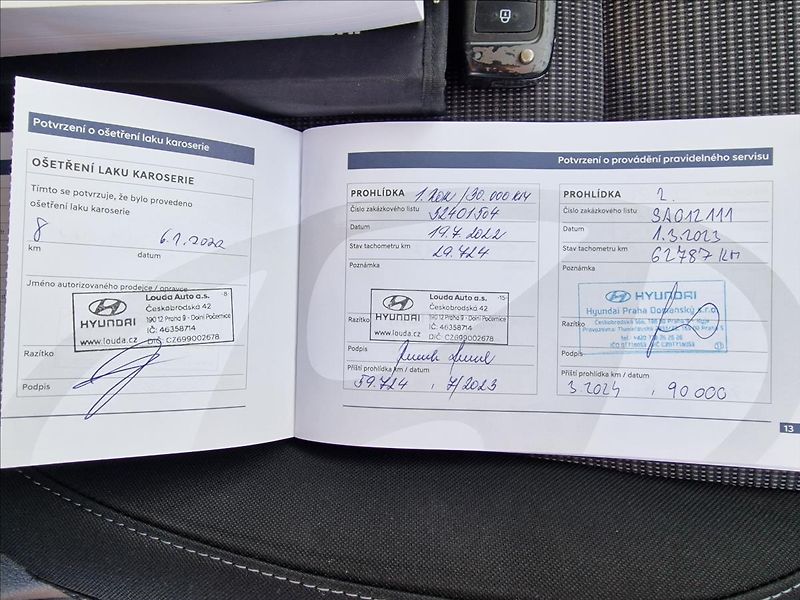 Potvrzení o ošetření laku karoserie
OŠETŘENÍ LAKU KAROSERIE
Tímto se potvrzuje, že bylo provedeno
ošetření laku karoserie
8
6.1.2022
km
datum
Jméno autorizovaného prodejce / opravce
HYUNDAI
www.louda.cz
Louda Auto a.s.
-8-
Českobrodská 42
190 12 Praha 9 - Dolní Počernice
IČ: 46358714
DIČ: CZ699002678
Razítko
Podpis
Potvrzení o provádění pravidelného servisu
PROHLÍDKA 1. /30.000 KM
Číslo zakázkového listu 32401504
Datum 19.7.2022
Stav tachometru km 29.724
Poznámka
HYUNDAI
www.louda.cz
Louda Auto a.s.
-15-
Českobrodská 42
190 12 Praha 9 - Dolní Počernice
IČ: 46358714
DIČ: CZ699002678
Razítko
Podpis
Příští prohlídka km / datum
59.724 , 7/2023
PROHLÍDKA 2.
Číslo zakázkového listu 3A012111
Datum 1.3.2023
Stav tachometru km 62787 KM
Poznámka
HYUNDAI
Hyundai Praha Domanský s.r.o.
Razítko
Podpis
Příští prohlídka km / datum
3.2024 , 90 000
13